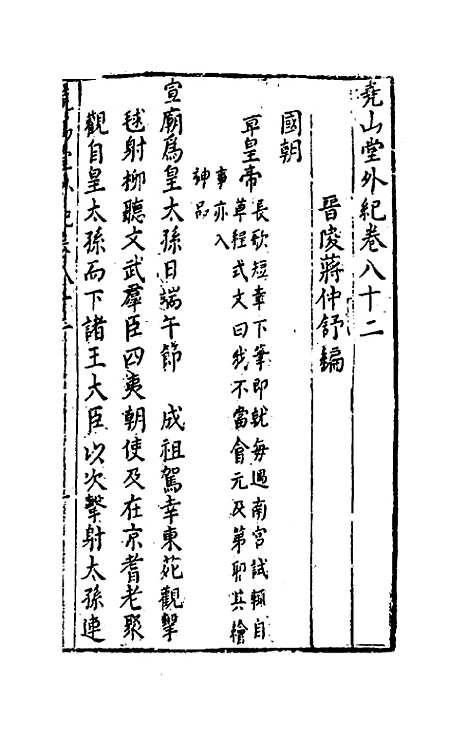 堯山堂外紀卷八十二
晉陵蔣仲舒編
國朝
章皇帝
長歌短章下筆即就每遇南宮試輒自
草程式文曰我不當會元及第耶其繪
事亦入
神品
宣廟爲皇太孫日端午節　成祖駕幸東苑觀擊
毬射柳聽文武羣臣四夷朝使及在京耆老聚
觀自皇太孫而下諸王大臣以次擊射太孫連